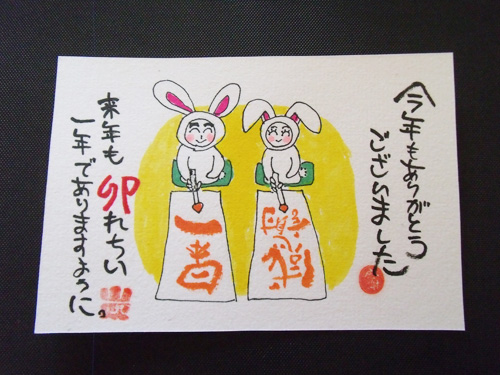 今年もありがとう
ございました
来年も卯れちい
一年でありますように。